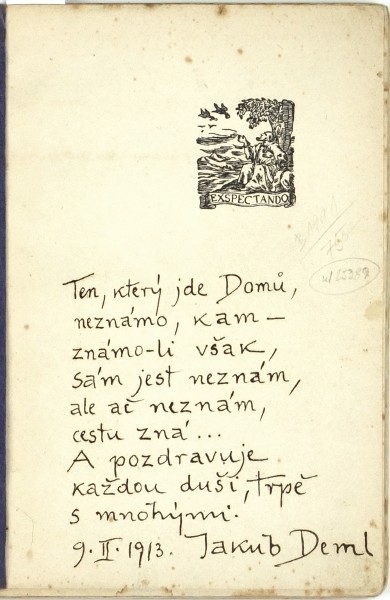 EXSPECTANDO
Ten, který jde Domů,
neznámo, kam –
známo-li však,
sám jest neznám,
ale ač neznám,
cestu zná...
A pozdravuje
každou duši, trpě
s mnohými.
9. II. 1913. Jakub Deml